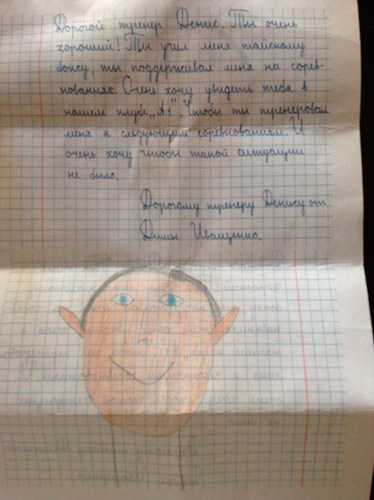 Дорогой тренер Денис. Ты очень
хороший! Ты учил меня тайскому
боксу, ты поддерживал меня на сорев-
нованиях. Очень хочу увидеть тебя в
нашем клубе „А1", чтобы ты тренировал
меня к следующим соревнованиям. И
очень хочу чтобы такой ситуации
не было.
Дорогому тренеру Денису от
Димы Иващенко.